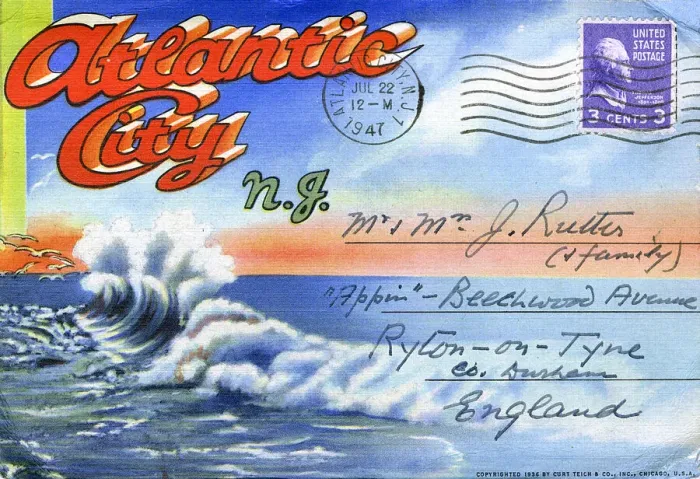 Atlantic
City
N.J.
ATLANTIC CITY, N.J. 1
JUL 22
12-M
1947
UNITED
STATES
POSTAGE
JEFFERSON
3 CENTS 3
Mr & Mrs J. Rutter
(& family)
"Appin" - Beechwood Avenue
Ryton-on-Tyne
Co. Durham
England
COPYRIGHTED 1936 BY CURT TEICH & CO., INC., CHICAGO, U.S.A.